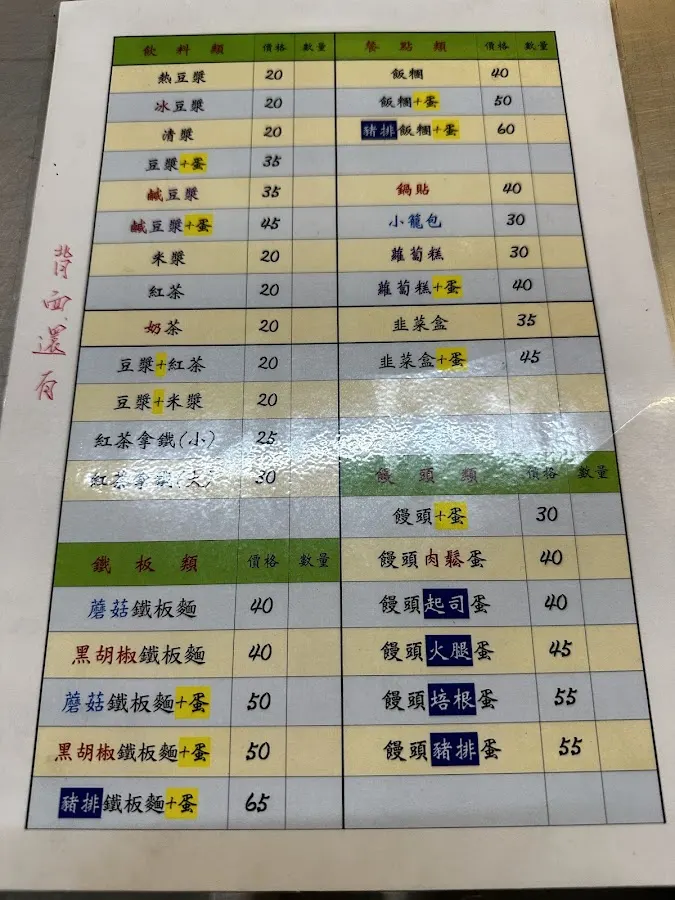 飲料類 價格 數量
熱豆漿 20
冰豆漿 20
清漿 20
豆漿+蛋 35
鹹豆漿 35
鹹豆漿+蛋 45
米漿 20
紅茶 20
奶茶 20
豆漿+紅茶 20
豆漿+米漿 20
紅茶拿鐵(小) 25
紅茶拿鐵(大) 30
鐵板類 價格 數量
蘑菇鐵板麵 40
黑胡椒鐵板麵 40
蘑菇鐵板麵+蛋 50
黑胡椒鐵板麵+蛋 50
豬排鐵板麵+蛋 65
餐點類 價格 數量
飯糰 40
飯糰+蛋 50
豬排飯糰+蛋 60
鍋貼 40
小籠包 30
蘿蔔糕 30
蘿蔔糕+蛋 40
韭菜盒 35
韭菜盒+蛋 45
饅頭類 價格 數量
饅頭+蛋 30
饅頭肉鬆蛋 40
饅頭起司蛋 40
饅頭火腿蛋 45
饅頭培根蛋 55
饅頭豬排蛋 55
背面還有